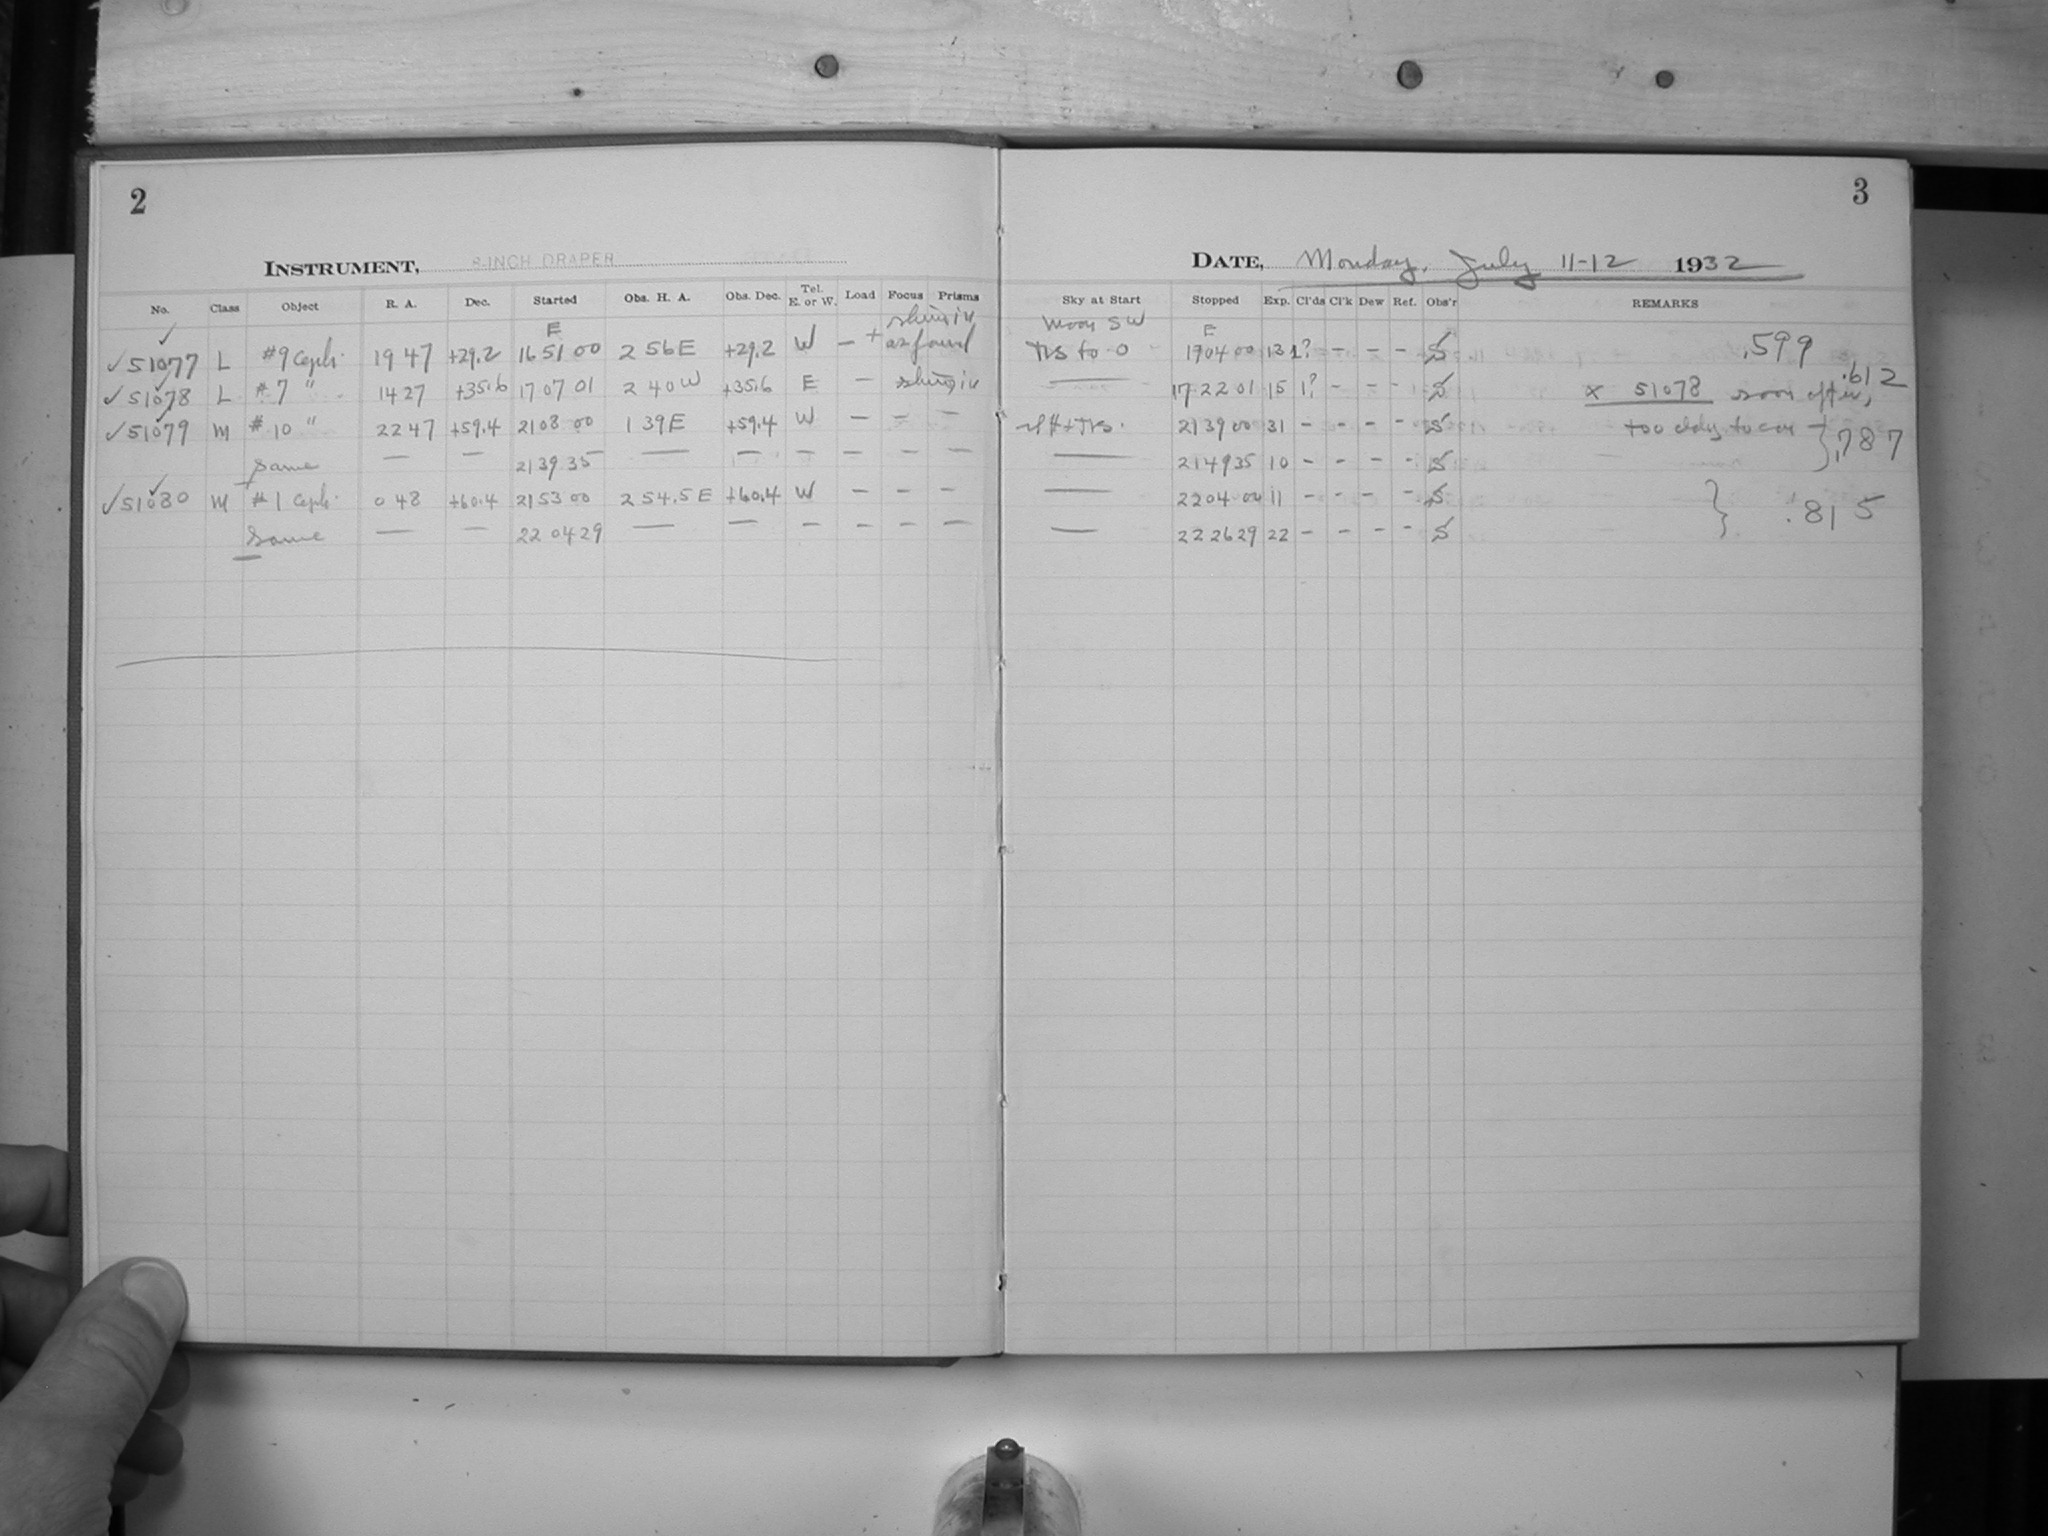 2
INSTRUMENT, 8-INCH DRAPER
No. Class Object R. A. Dec. Started Obs. H. A. Obs. Dec. Tel. E. or W. Load Focus Prisms
✓51077 L #9 Ceph. 19 47 +29.2 E 16 51 00 2 56 E +29.2 W — + as found
✓51078 L #7 " 14 27 +35.6 17 07 01 2 40 W +35.6 E —
✓51079 M #10 " 22 47 +59.4 21 08 00 1 39 E +59.4 W — — —
Same — — 21 39 35 — — — — — —
✓51080 M #1 Ceph. 0 48 +60.4 21 53 00 2 54.5 E +60.4 W — — —
Same — — 22 04 29 — — — — — —
3
DATE, Monday, July 11-12 1932
Sky at Start Stopped Exp. Cl'ds Cl'k Dew Ref. Obs'r REMARKS
Moon SW E
to 0 17 04 00 13 1? — — — S .599
— 17 22 01 15 1? — — — S x 51078 soon after, .612
21 39 00 31 — — — — S too cldy to } .787
— 21 49 35 10 — — — — S
— 22 04 00 11 — — — — S } .815
— 22 26 29 22 — — — — S